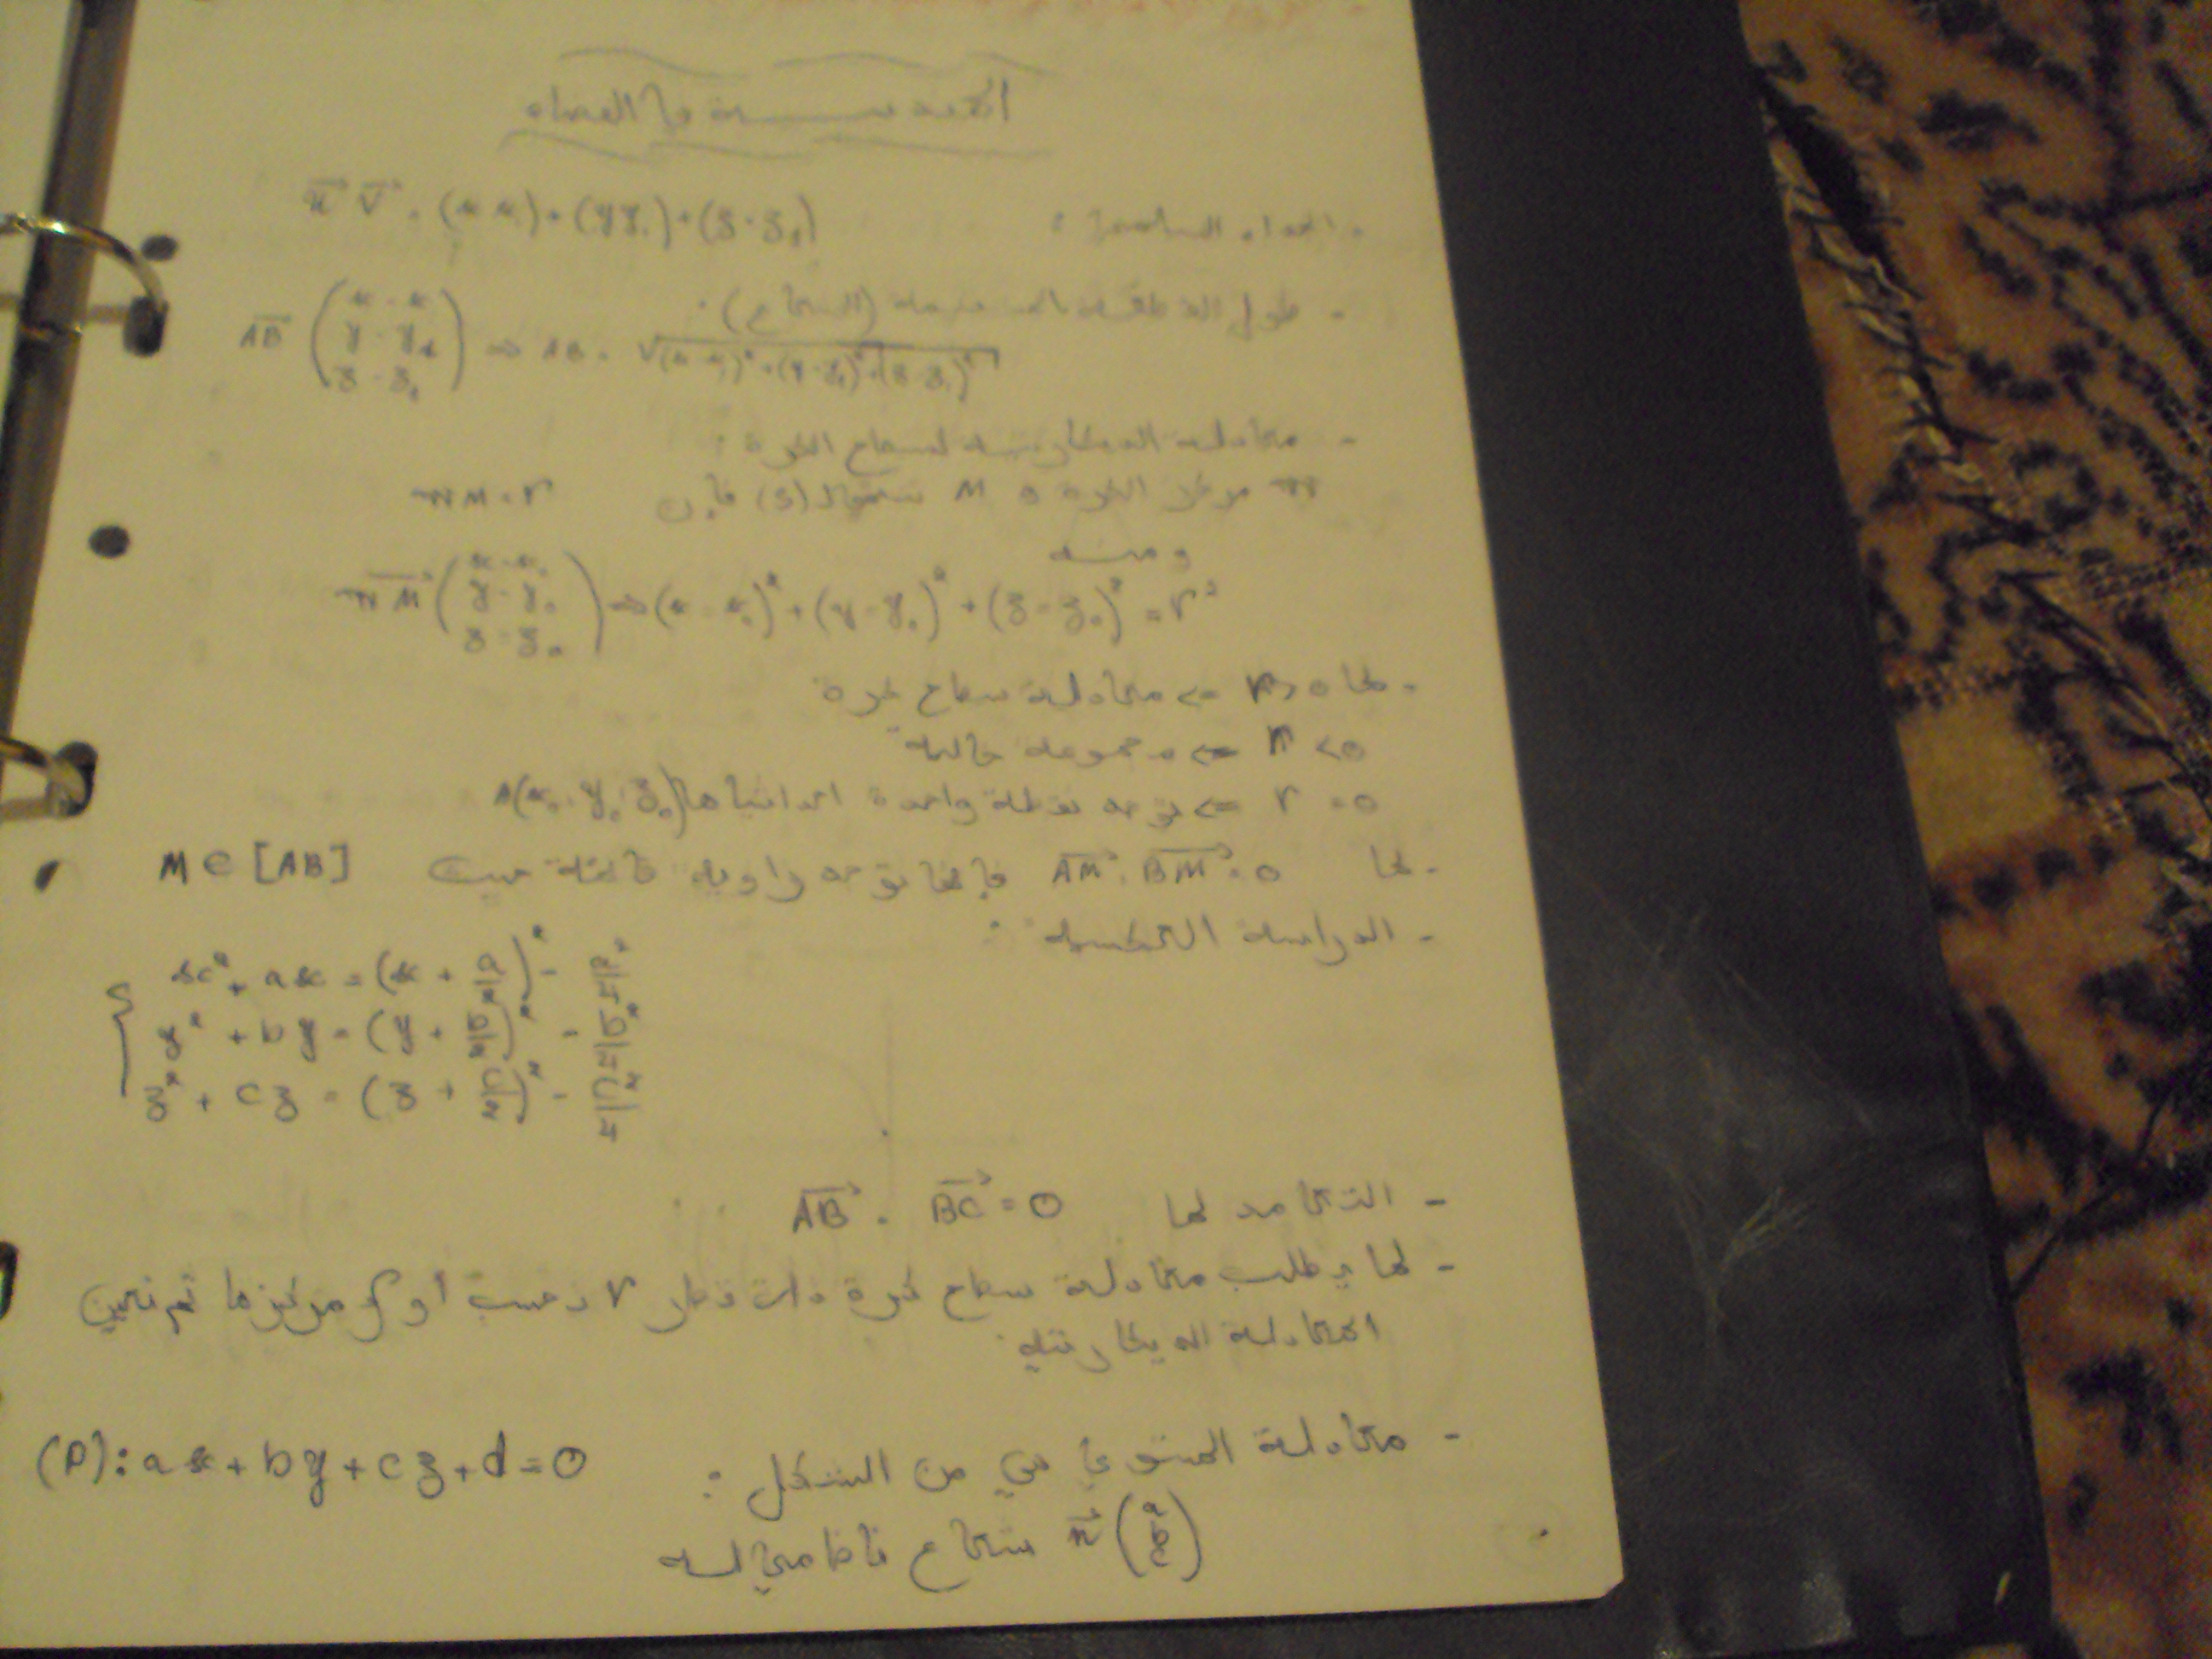 الهندسة في الفضاء
- الجداء السلمي : u⃗ v⃗ = (x x₁) + (y y₁) + (z · z₁)
- طول القطعة المستقيمة (الشعاع) :
AB⃗ (x - x, y - y₁, z - z₁) ⇒ AB = √(x-x₁)²+(y-y₁)²+(z-z₁)²
- معادلة الديكارتية لسطح الكرة :
مركز الكرة و M سطح (S) فإن wM = r
ومنه
wM⃗ (x - x₀, y - y₀, z - z₀) ⇒ (x - x₀)² + (y - y₀)² + (z - z₀)² = r²
- لما r > 0 => معادلة سطح كرة
r < 0 => مجموعة خالية
r = 0 => توجد نقطة واحدة احداثياتها A(x₀, y₀, z₀)
- لما AM⃗ . BM⃗ = 0 فإنها توجد زاوية قائمة حيث M ∈ [AB]
- الدراسة التحليلية :
x² + ax = (x + a/2)² - a²/4
y² + by = (y + b/2)² - b²/4
z² + cz = (z + c/2)² - c²/4
- التعامد لما AB⃗ . BC⃗ = 0
- لما يطلب معادلة سطح كرة ذات قطر r نحسب أو مركزها ثم نعين
المعادلة الديكارتية.
- معادلة المستوي هي من الشكل : (P): ax + by + cz + d = 0
n⃗ (a b c) شعاع ناظمي له